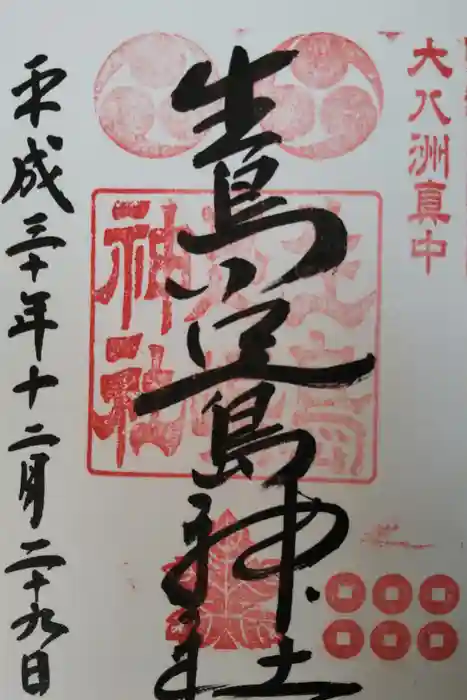 大八洲真中
生島足島神社
平成三十年十二月二十九日
神社